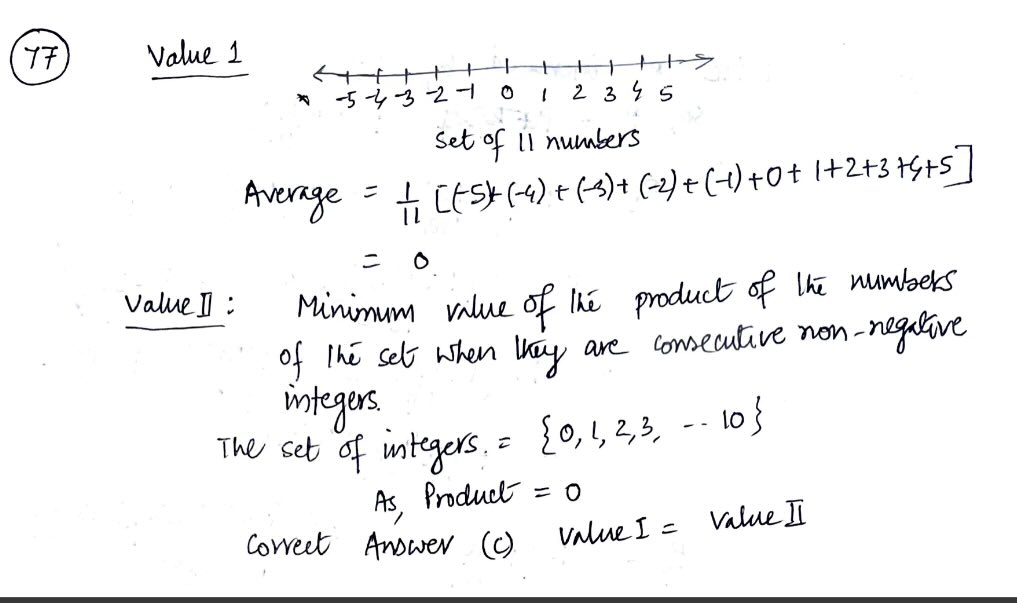 77
Value 1
-5 -4 -3 -2 -1 0 1 2 3 4 5
Set of 11 numbers
Average = 1/11 [(-5)+(-4)+(-3)+(-2)+(-1)+0+1+2+3+4+5]
= 0.
Value II : Minimum value of the product of the numbers
of the set when they are consecutive non-negative
integers.
The set of integers. = {0,1,2,3, -- 10}
As, Product = 0
Correct Answer (C) Value I = Value II